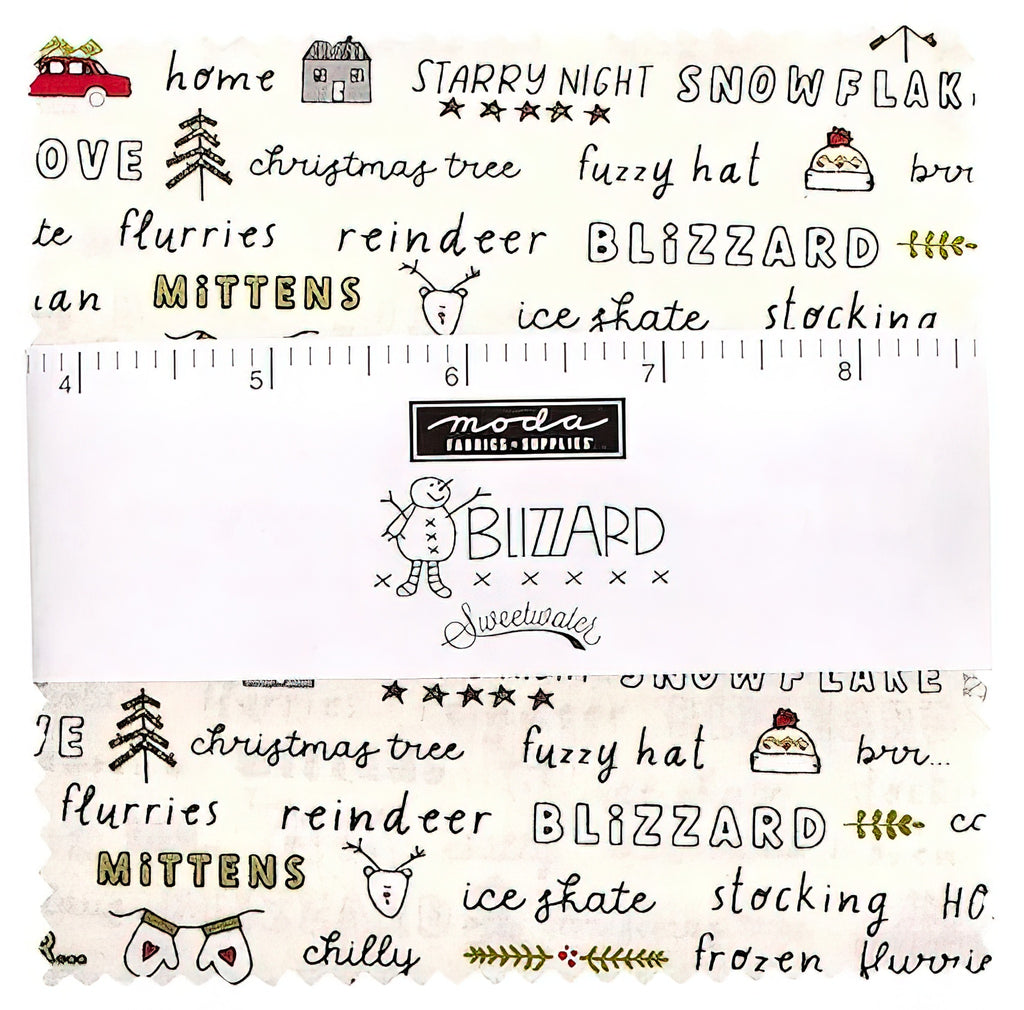 home STARRY NIGHT SNOWFLAK
OVE christmas tree fuzzy hat brr
te flurries reindeer BLiZZARD
an MiTTENS ice skate stocking
4 5 6 7 8
moda
FABRICS + SUPPLIES
BLIZZARD
x x x x x x
Sweetwater
SNOWFLAKE
E christmas tree fuzzy hat brr...
flurries reindeer BLiZZARD co
MiTTENS ice skate stocking HO
chilly frozen flurrie